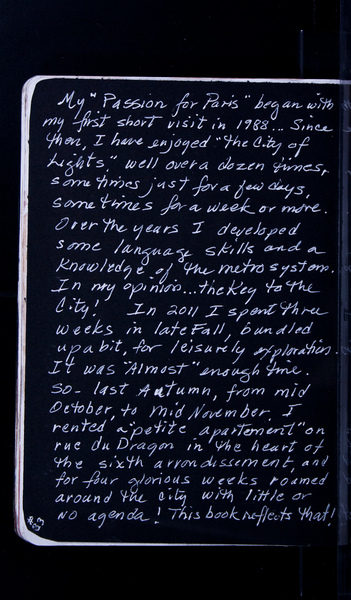 My "Passion for Paris" began with
my first short visit in 1988... Since
then, I have enjoyed "the City of
Lights" well over a dozen times,
sometimes just for a few days,
sometimes for a week or more.
Over the years I developed
some language skills and a
knowledge of the metro system.
In my opinion... the key to the
City! In 2011 I spent three
weeks in late Fall, bundled
up a bit, for leisurely exploration.
It was "Almost" enough time.
So - last Autumn, from mid
October, to mid November, I
rented a "petite apartement" on
rue du Dragon in the heart of
the sixth arrondissement, and
for four glorious weeks roamed
around the city with little or
no agenda! This book reflects that!